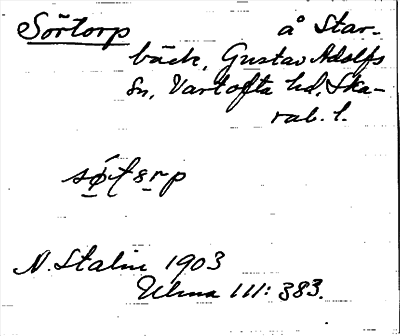 Sörtorp å Star-
bäck, Gustav Adolfs
sn, Vartofta hd, Ska-
rab. l.
N. Stalin 1903
Ulma 111: 383.